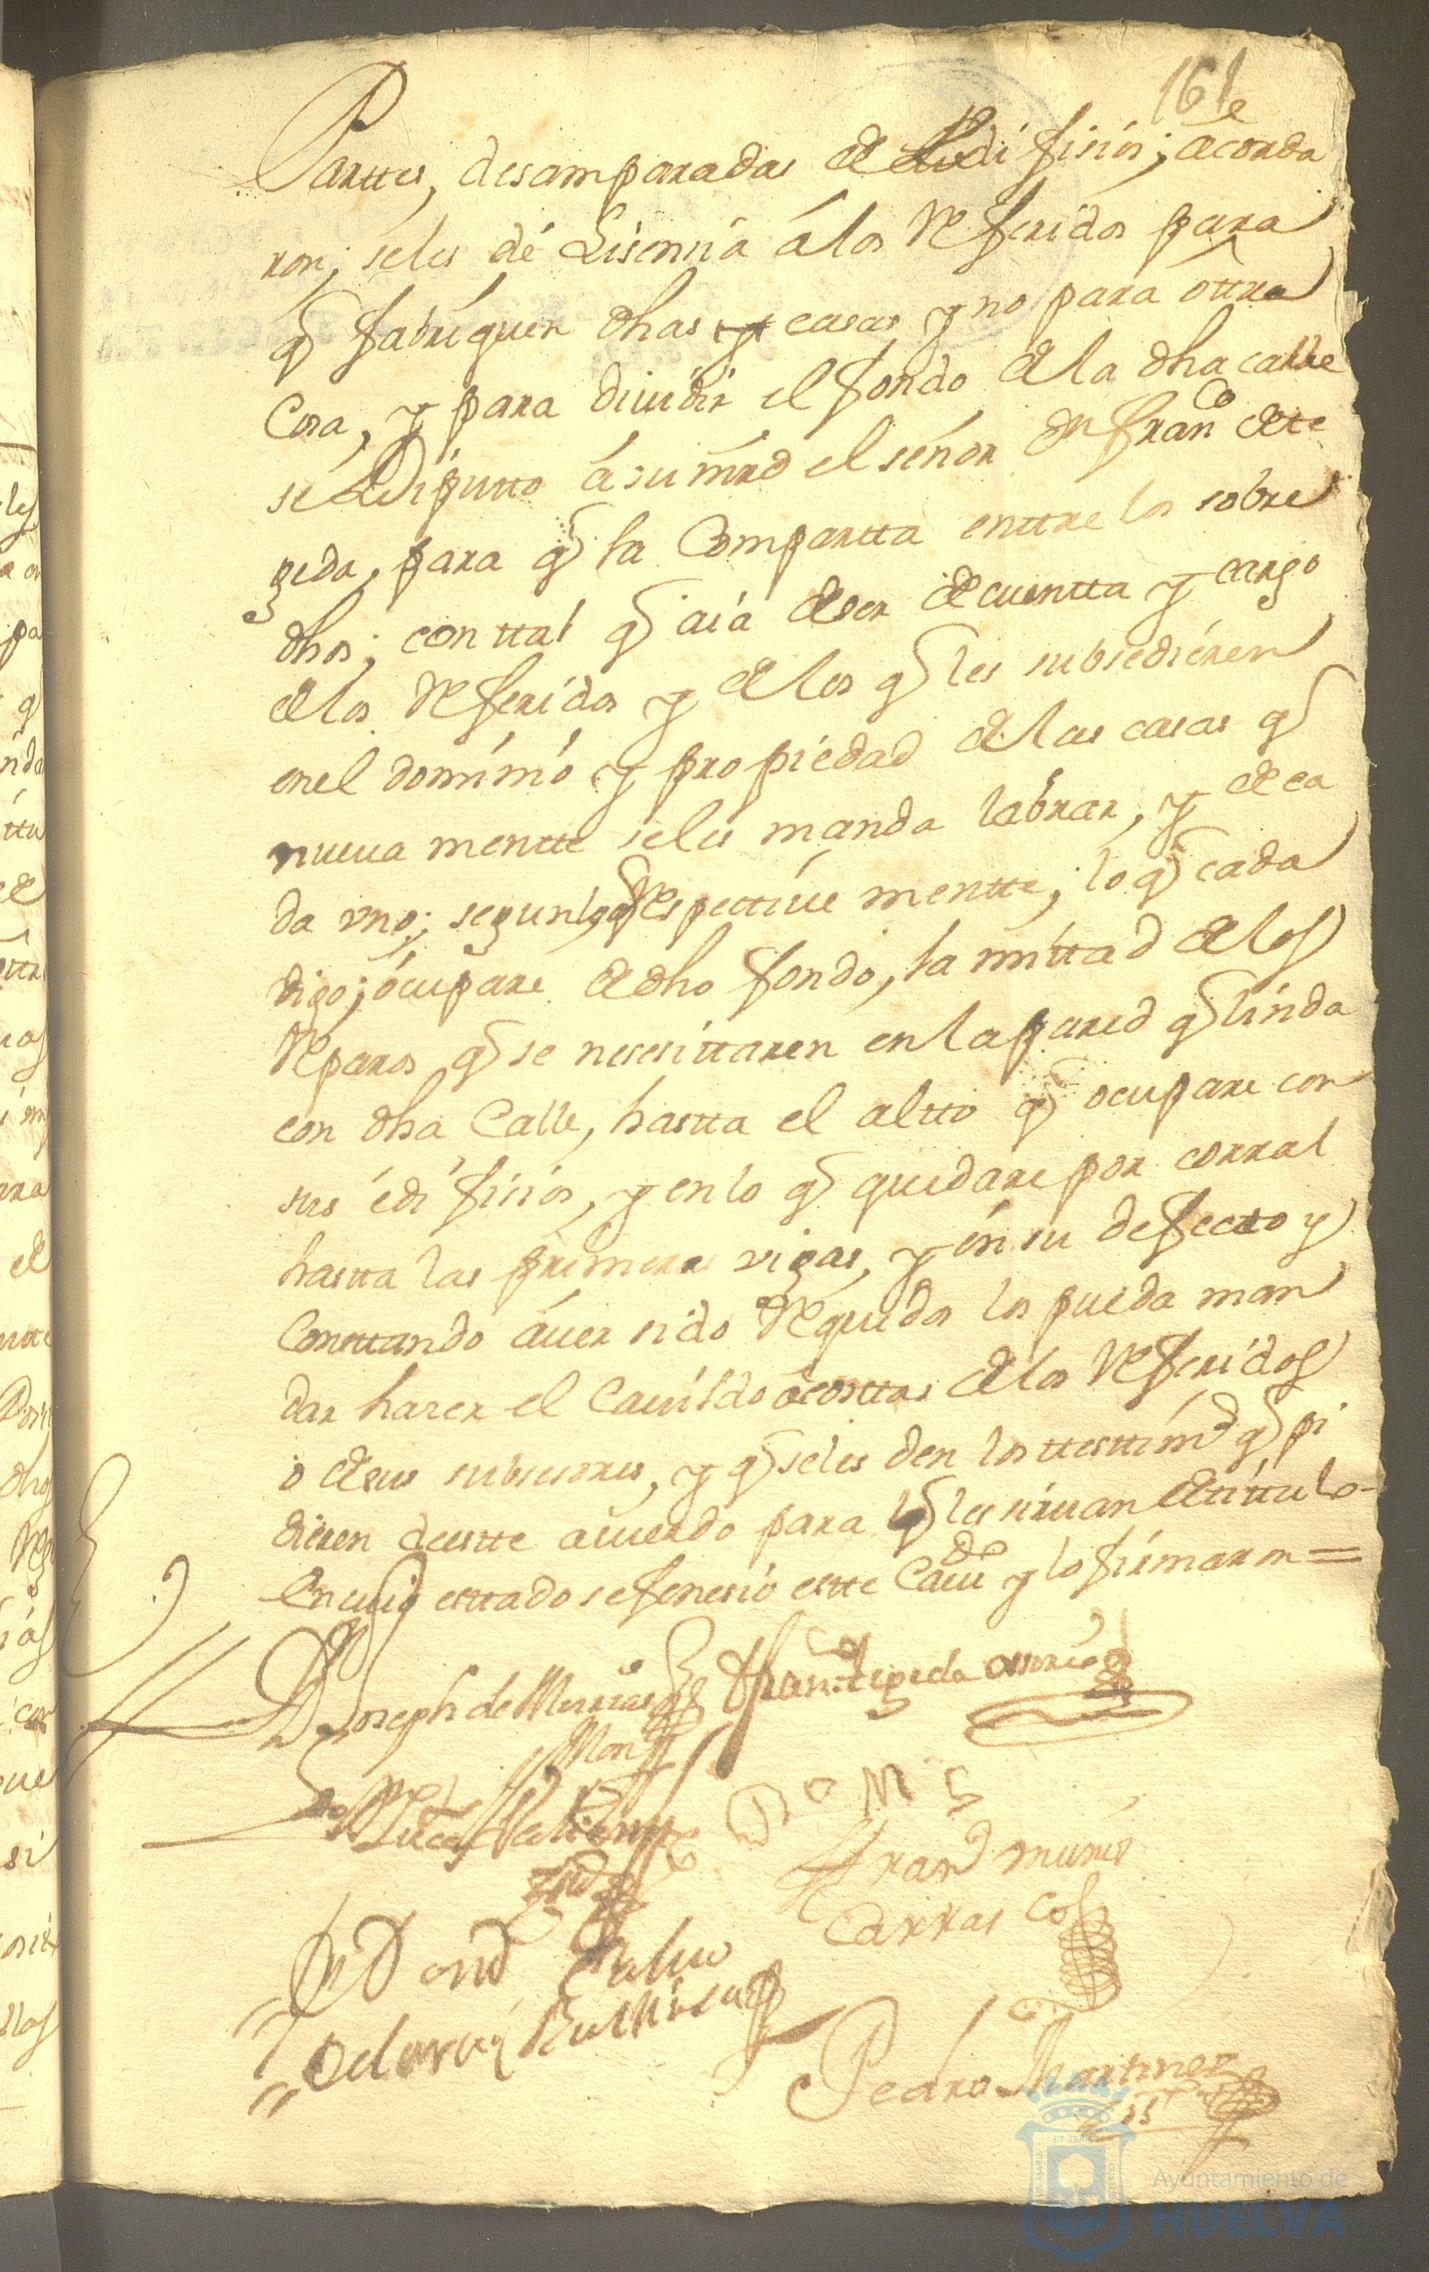 161
Parttes, desamparadas de edifisios; acorda
ron; seles dé Lisensia á los Referidos para
q fabriquen dhas casas, y no para ôttra
Cosa, y para diuidir el fondo de la dha calle
se Diputto á su mrd el señor Dn franco de te
xeda, para q la Compartta enttre los sobre
dhos; con ttal q aia de ser de cuentta y cargo
de los Referidos y de los q les subsedieren
en el dominio y propiedad de las casas q
nueua mentte seles manda labrar, y de ca
da vno; segun lo q Respectiue mentte; lo q cada
digo; ocupare de dho fondo, la mittad de los
Reparos q se nesesittaren en la pared q linda
con dha Calle, hastta el altto q ocupare con
sus édifisios, y en lo q quedare por corral
hastta las primeras vigas, y en su defectto y
Consttando áuer sido Requeridos los pueda man
dar haser el Cauildo á costtas de los Referidos
o de sus subsesores, y q seles den los testtimos q pi
dieren de estte acuerdo para q les siruan de títtulo-
En cuio esttado se fenesio estte Caudo y lo firmaron =
Dn Joseph de
Dn Fran
Lucas
Fran muñis
Carrasco
Pedro Martinez
Ayuntamiento de
HUELVA